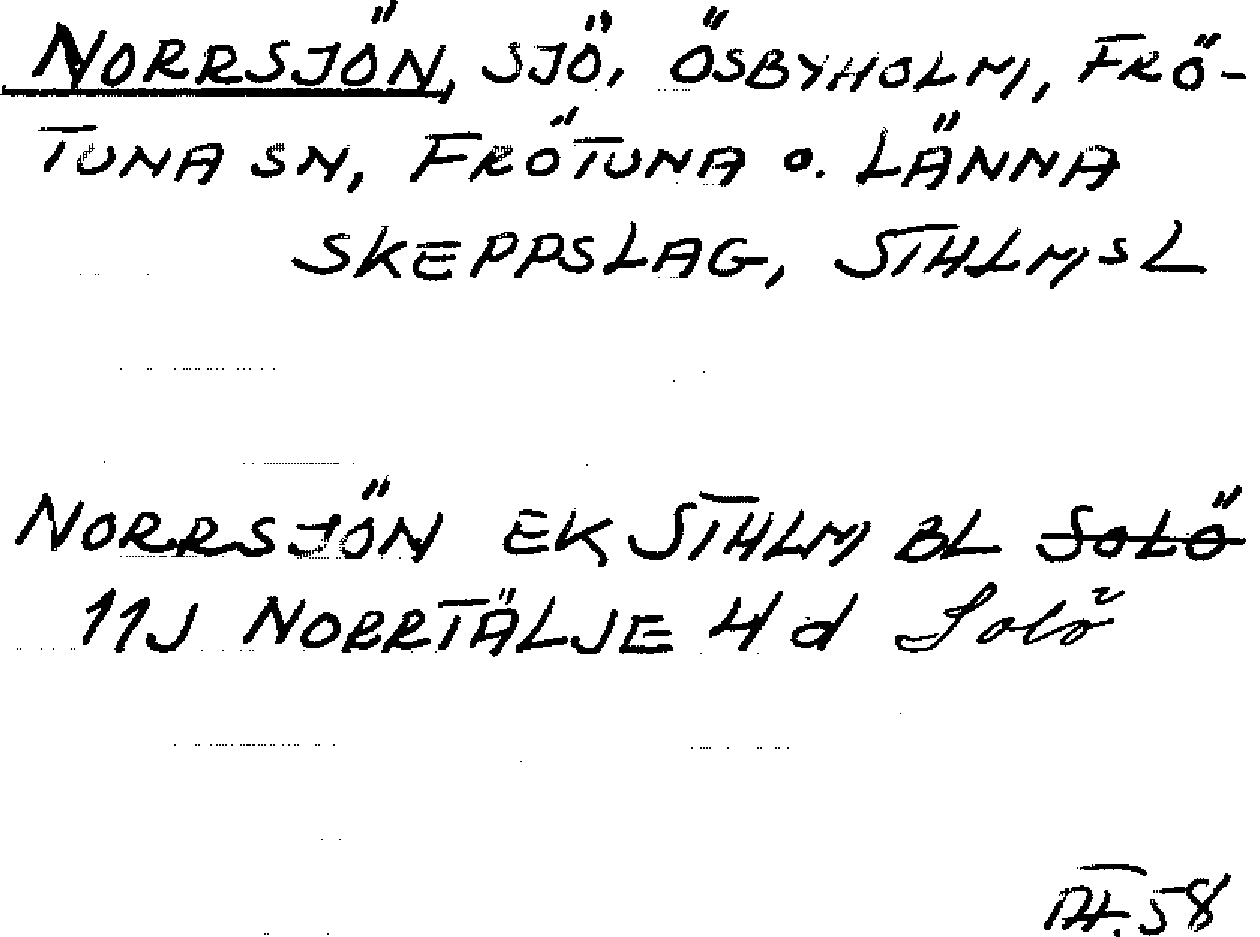 NORRSJÖN, SJÖ, ÖSBYHOLM, FRÖ-
TUNA SN, FRÖTUNA O. LÄNNA
SKEPPSLAG, STHLMS L
NORRSJÖN EK STHLM BL SOLÖ
11J NORRTÄLJE 4 d Solö
58